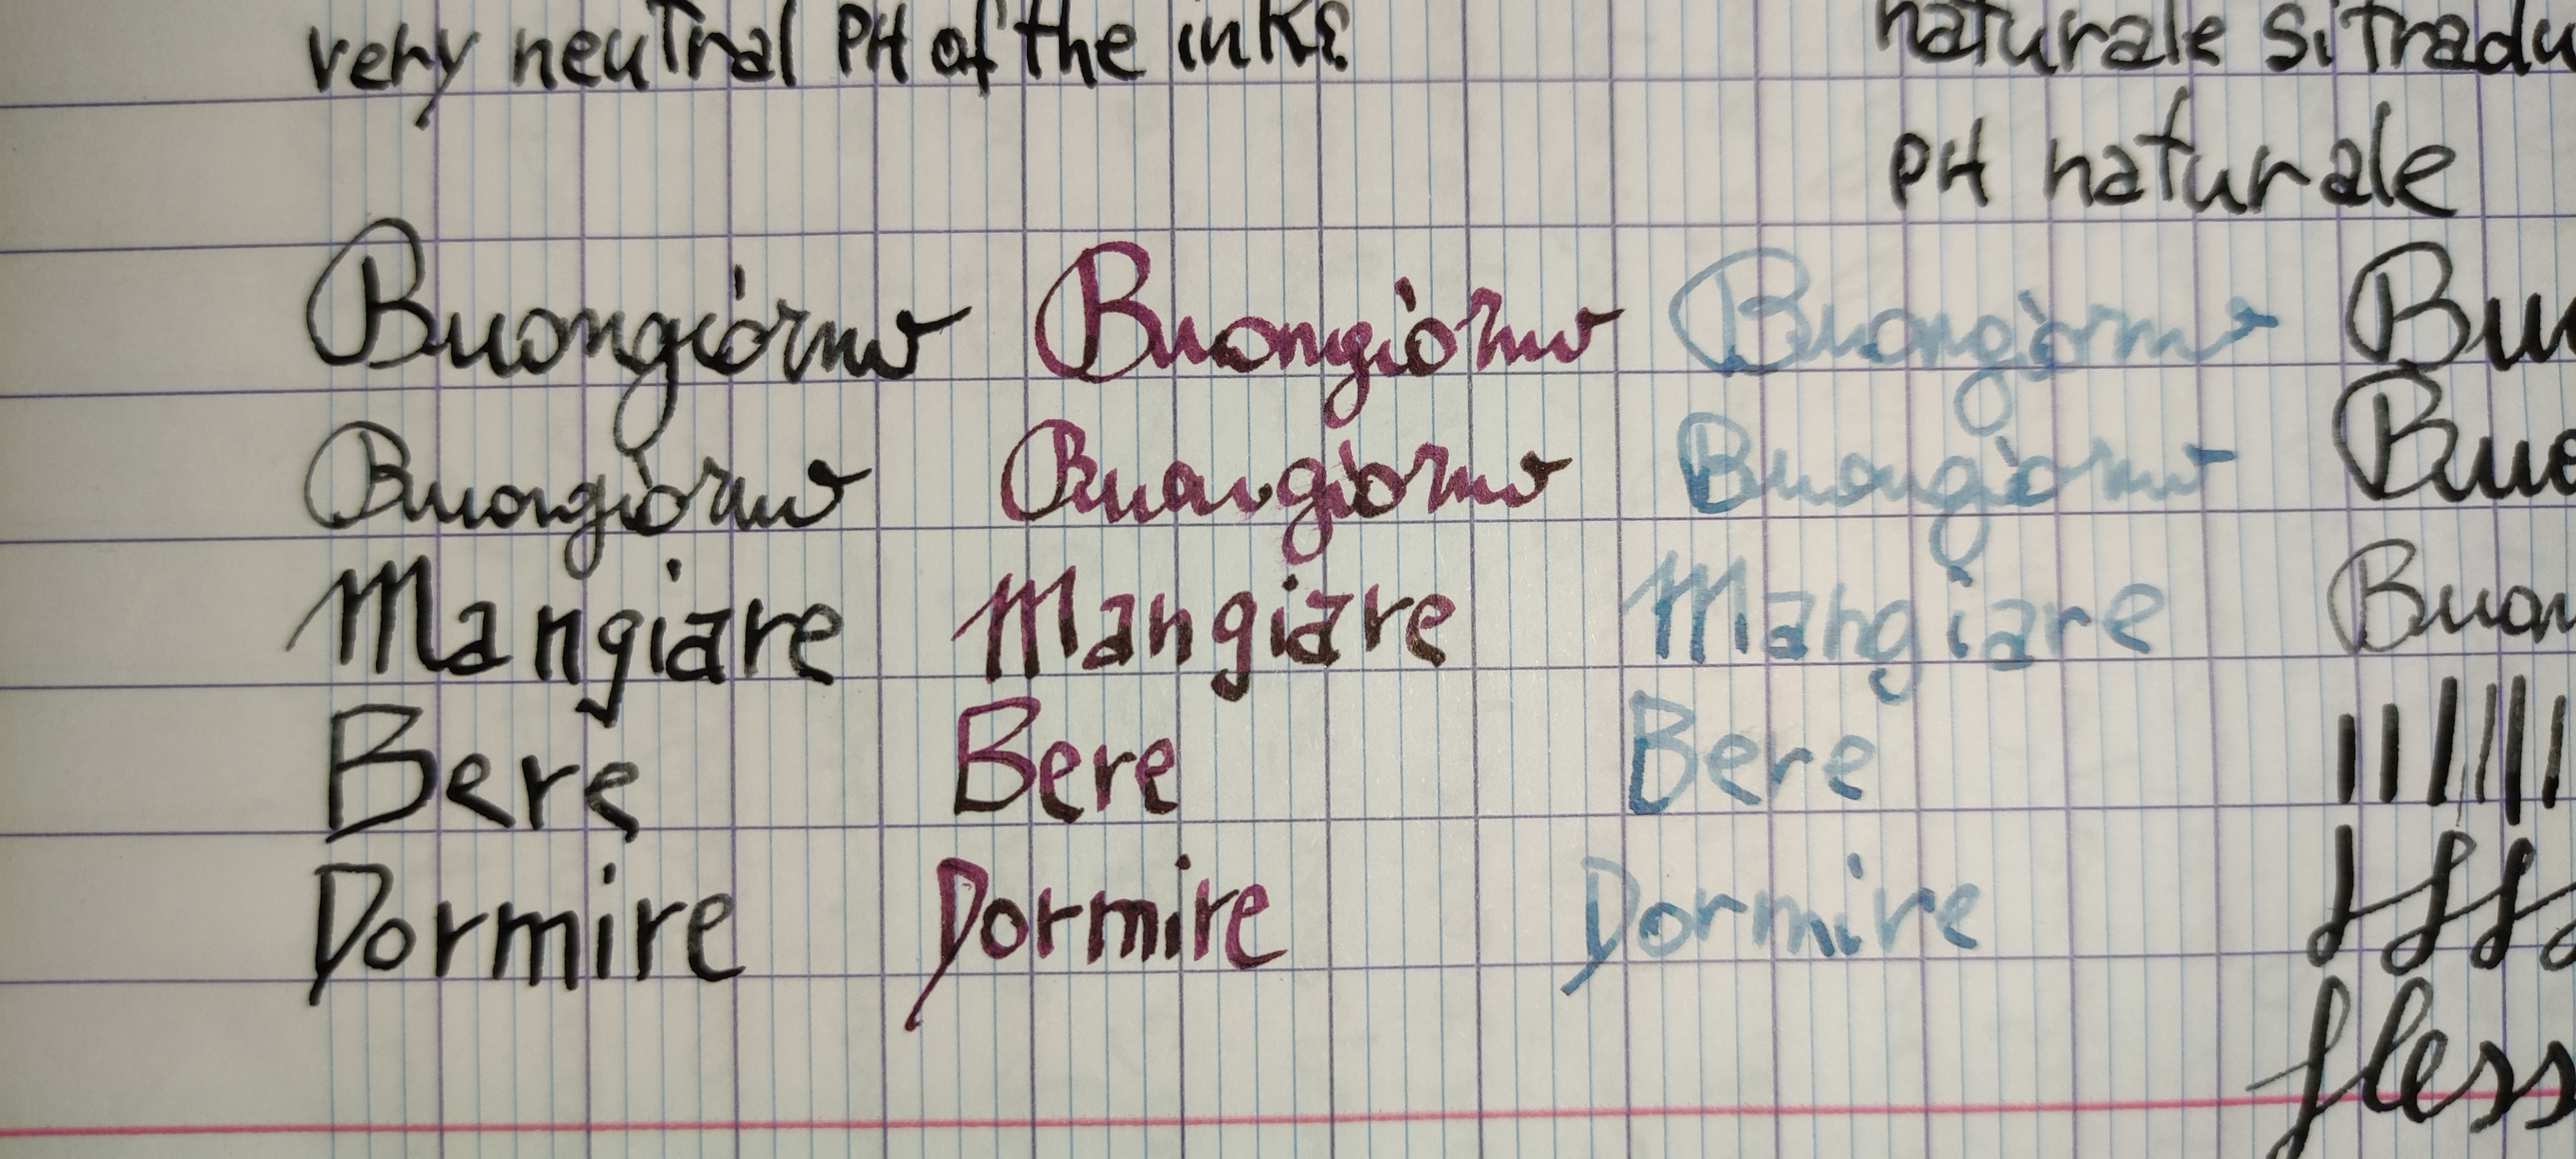 very neutral PH of the inks?
naturale si tradu
PH naturale
Buongiorno Buongiorno Buongiorno Bu
Buongiorno Buongiorno Buongiorno Buo
Mangiare Mangiare Mangiare Buon
Bere Bere Bere
Dormire Dormire Dormire
fless